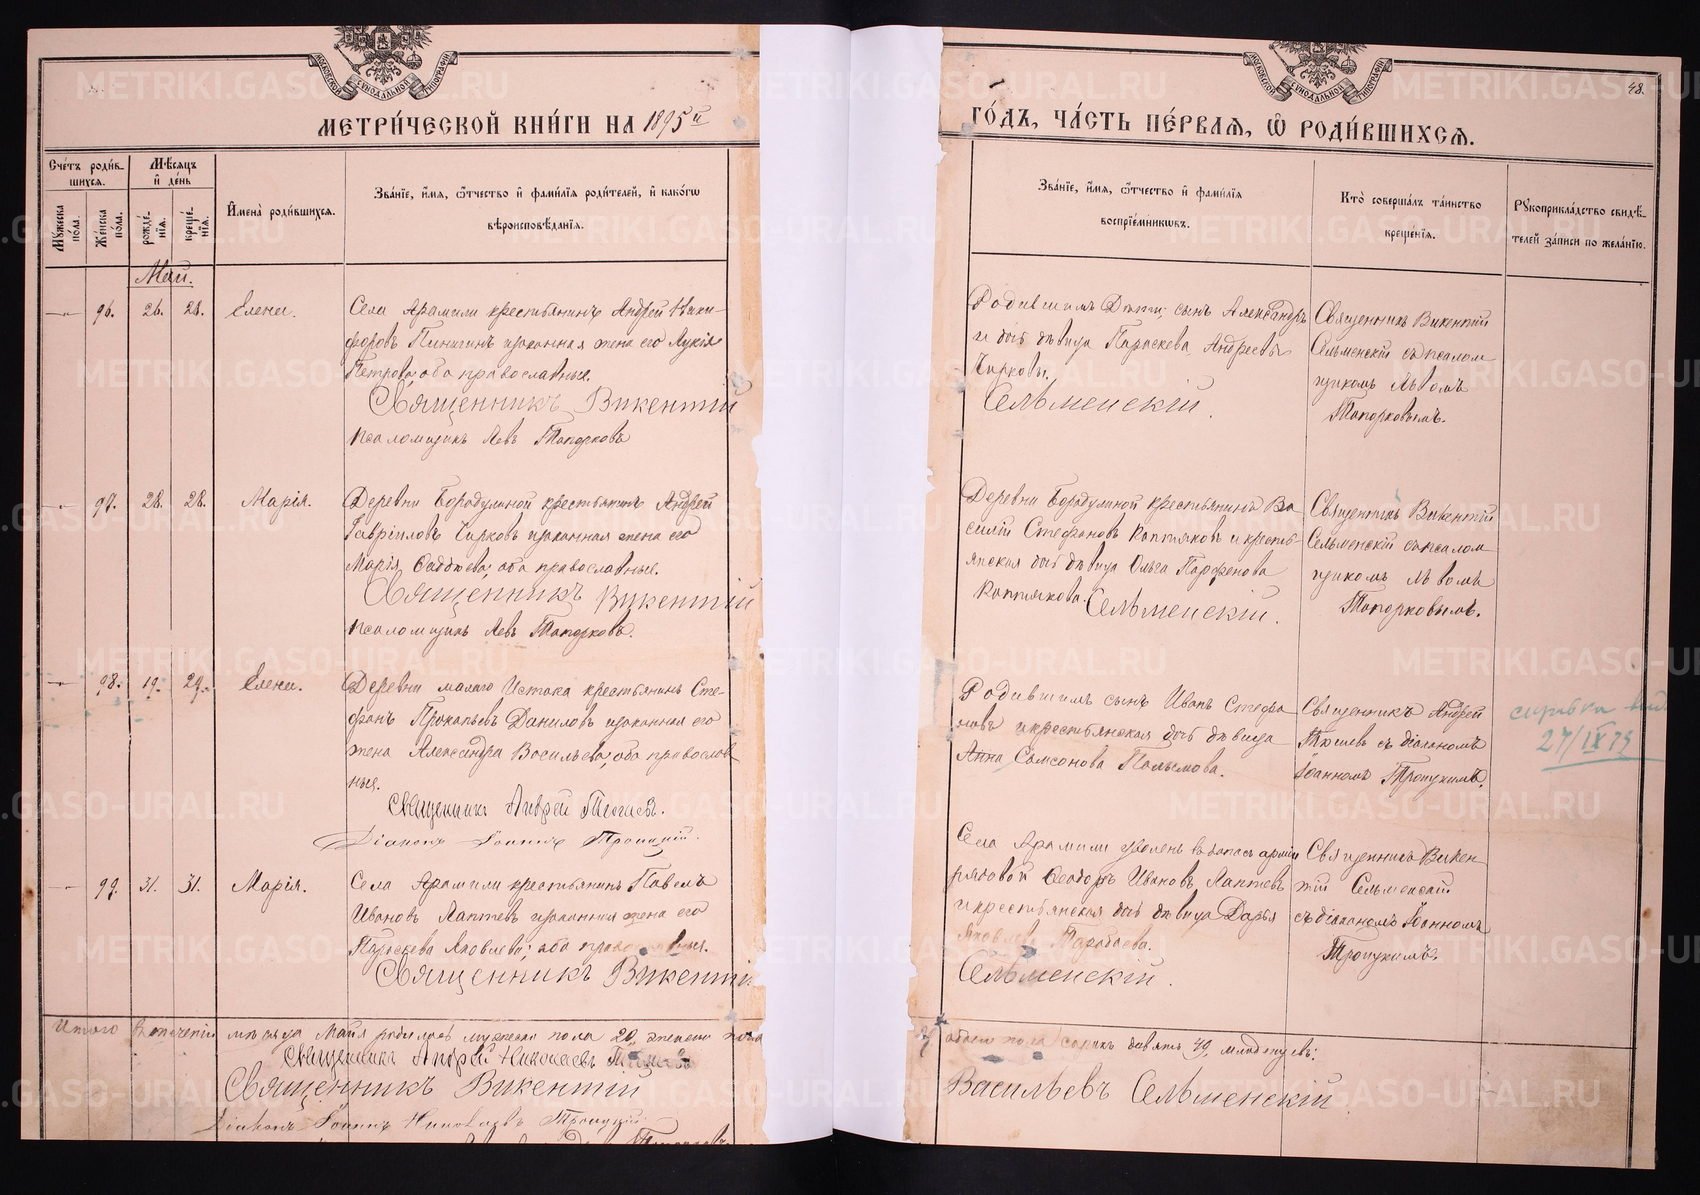 МЕТРИ́ЧЕСКОЙ КНИ́ГИ НА 1895й
ГО́ДЪ, ЧА́СТЬ ПЕ́РВАѦ, Ѡ҆ РОДИ́ВШИХСѦ.
48.
МОСКОВСКОЙ СѴНОДАЛЬНОЙ ТИПОГРАФІИ
МОСКОВСКОЙ СѴНОДАЛЬНОЙ ТИПОГРАФІИ
Сче́тъ роди́вшихсѧ.
Мꙋ́жеска по́ла.
Же́нска по́ла.
Мѣ́сѧцъ и҆ де́нь
рожде́нїѧ.
креще́нїѧ.
И҆мена̀ роди́вшихсѧ.
Зва́нїе, и҆́мѧ, ѻ҆́тчество и҆ фами́лїѧ роди́телей, и҆ како́гѡ
вѣроисповѣ́данїѧ.
Зва́нїе, и҆́мѧ, ѻ҆́тчество и҆ фами́лїѧ
воспрїе́мникѡвъ.
Кто̀ соверша́лъ та́инство
креще́нїѧ.
Рꙋкоприкла́дство свидѣ́телей за́писи по жела́нїю.
Май.
— 96. 26. 28. Елена.
Села Арамили крестьянинъ Андрей Ники-
форовъ Пинигинъ и законная жена его Лукія
Петрова, оба православные.
Священникъ Викентій
Псаломщикъ Левъ Топорковъ
Родившимъ Дѣти; сынъ Александръ
и дочь дѣвица Параскева Андреевы
Чирковы.
Сельменскій.
Священникъ Викентій
Сельменскій съ псалом
щикомъ Львомъ
Топорковымъ.
— 97. 28. 28. Марія.
Деревни Бородулиной крестьянинъ Андрей
Гавріиловъ Чирковъ и законная жена его
Марія Фаддѣева, оба православные.
Священникъ Викентій
Псаломщикъ Левъ Топорковъ.
Деревни Бородулиной крестьянинъ Ва
силій Стефановъ Коптяковъ и кресть-
янская дочь дѣвица Ольга Парфенова
Коптякова. Сельменскій.
Священникъ Викентій
Сельменскій съ псалом
щикомъ Львомъ
Топорковымъ.
— 98. 19. 29. Елена.
Деревни малаго Истока крестьянинъ Сте-
фанъ Прокопьевъ Даниловъ и законная его
жена Александра Васильева, оба православ-
ные.
Священникъ Андрей
Діаконъ Іоаннъ Троицкій.
Родившимъ сынъ Иванъ Стефа
новъ и крестьянская дочь дѣвица
Анна Самсонова
Священникъ Андрей
съ діакономъ
Іоанномъ Троицкимъ.
справка выд
27/IX 75
— 99. 31. 31. Марія.
Села Арамили крестьянинъ Павелъ
Ивановъ Лаптевъ и законная жена его
Параскева Яковлева; оба православные.
Священникъ Викентій
Села Арамили уволенъ въ запасъ арміи
рядовой Ѳеодоръ Ивановъ Лаптевъ
и крестьянская дочь дѣвица Дарья
Яковлева
Сельменскій.
Священникъ Викен
тій Сельменскій
съ діакономъ Іоанномъ
Троицкимъ.
Итого въ теченіи мѣсяца Мая родилось мужеска пола 20, женска пола
обоего пола сорокъ девять 49, младенцевъ:
Священникъ Андрей Николаевъ
Священникъ Викентій
Васильевъ Сельменскій
Діаконъ Іоаннъ Николаевъ Троицкій
METRIKI.GASO-URAL.RU